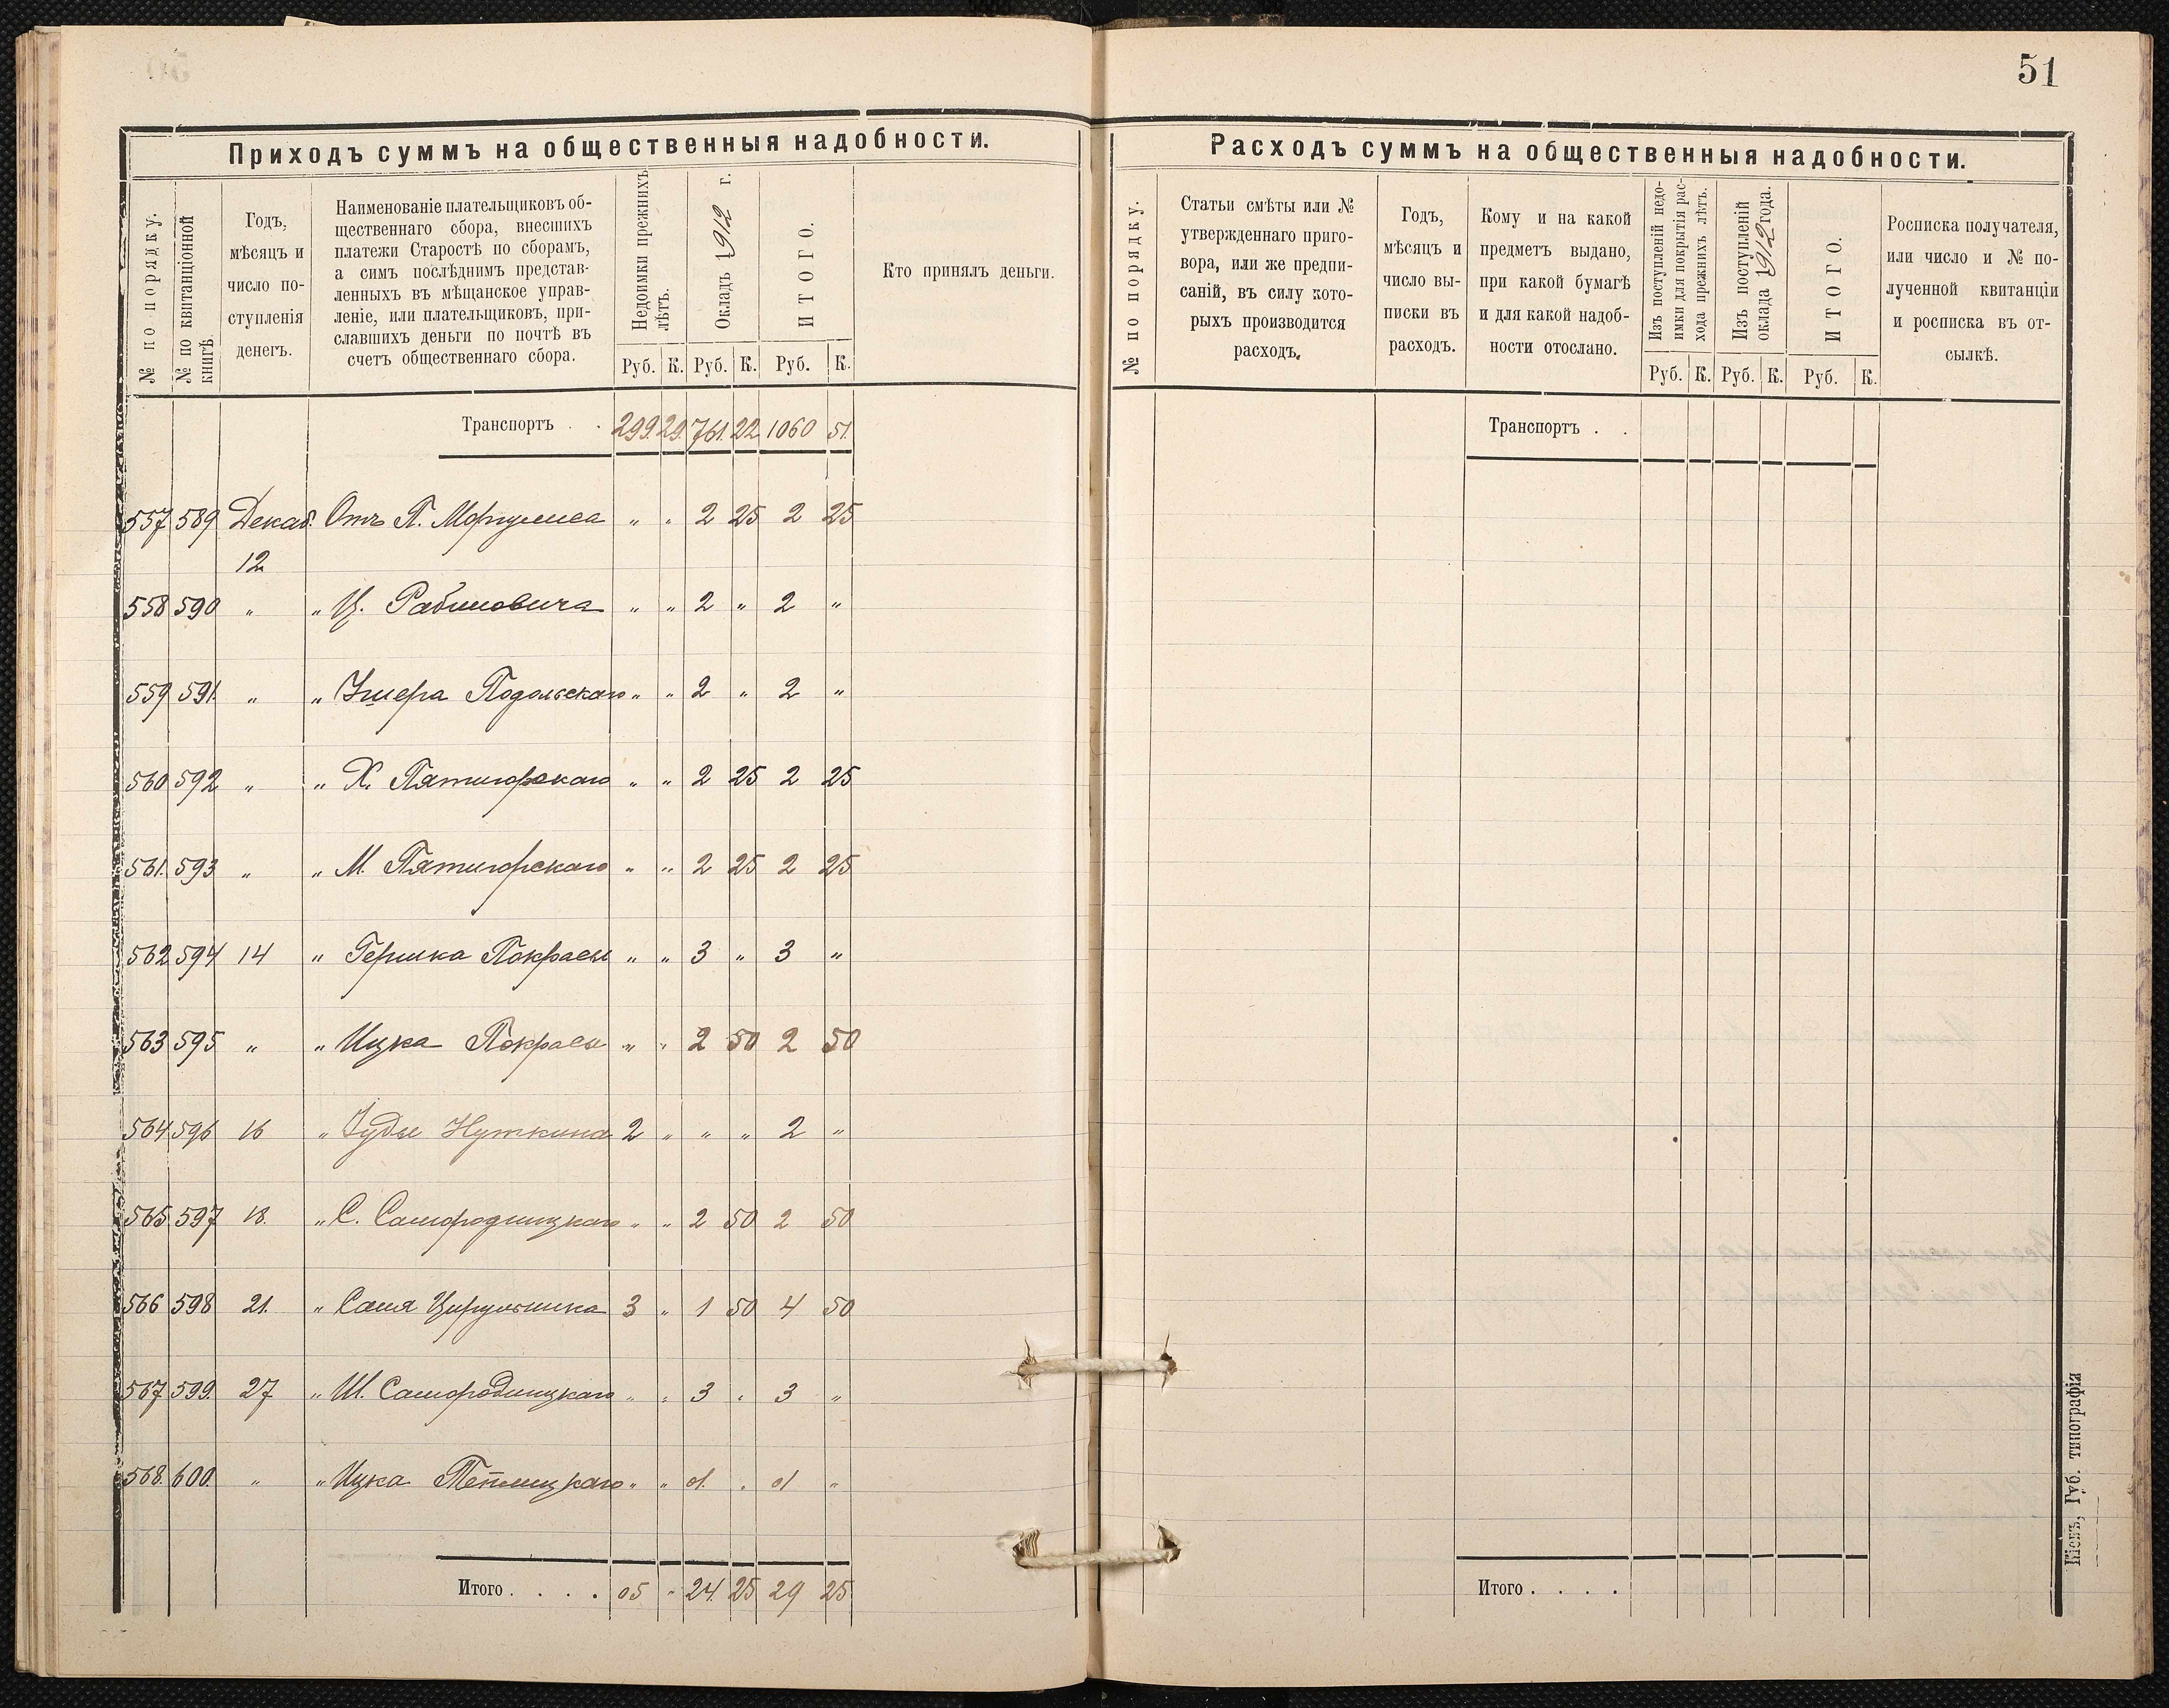 51
Приходъ суммъ на общественныя надобности.
№ по порядку.
№ по квитанціонной книгѣ.
Годъ,
мѣсяцъ и
число по-
ступленія
денегъ.
Наименованіе плательщиковъ об-
щественнаго сбора, внесшихъ
платежи Старостѣ по сборамъ,
а симъ послѣднимъ представ-
ленныхъ въ мѣщанское управ-
леніе, или плательщиковъ, при-
славшихъ деньги по почтѣ въ
счетъ общественнаго сбора.
Недоимки прежнихъ
лѣтъ.
Окладъ 1912 г.
ИТОГО.
Кто принялъ деньги.
Руб. К. Руб. К. Руб. К.
Транспортъ . . 299. 29. 761. 22 1060 51.
557 589 Декаб. 12 Отъ П. Моргулиса " " 2 25 2 25
558 590 " " Ц. Рабиновича " " 2 " 2 "
559 591. " " Ушера Подольскаго " " 2 " 2 "
560 592 " " Х. Пятигорскаго " " 2 25 2 25
561. 593 " " М. Пятигорскаго " " 2 25 2 25
562 594 14 " Гершка Покрасы " " 3 " 3 "
563 595 " " Ицка Покрасы " " 2 50 2 50
564 596 16 " Іуды Нуткина 2 " " " 2 "
565 597 18. " С. Самородницкаго " " 2 50 2 50
566 598 21. " Саля Цирульника 3 " 1 50 4 50
567 599. 27 " Ш. Самородницкаго " " 3 " 3 "
568. 600. " " Ицка Теплицкаго " " 1. " 1 "
Итого . . . . 05 " 24. 25 29 25
Расходъ суммъ на общественныя надобности.
№ по порядку.
Статьи смѣты или №
утвержденнаго приго-
вора, или же предпи-
саній, въ силу кото-
рыхъ производится
расходъ.
Годъ,
мѣсяцъ и
число вы-
писки въ
расходъ.
Кому и на какой
предметъ выдано,
при какой бумагѣ
и для какой надоб-
ности отослано.
Изъ поступленій недо-
имки для покрытія рас-
хода прежнихъ лѣтъ.
Изъ поступленій
оклада 1912 года.
ИТОГО.
Росписка получателя,
или число и № по-
лученной квитанціи
и росписка въ от-
сылкѣ.
Руб. К. Руб. К. Руб. К.
Транспортъ . .
Итого . . . .
Кіевъ, Губ. типографія